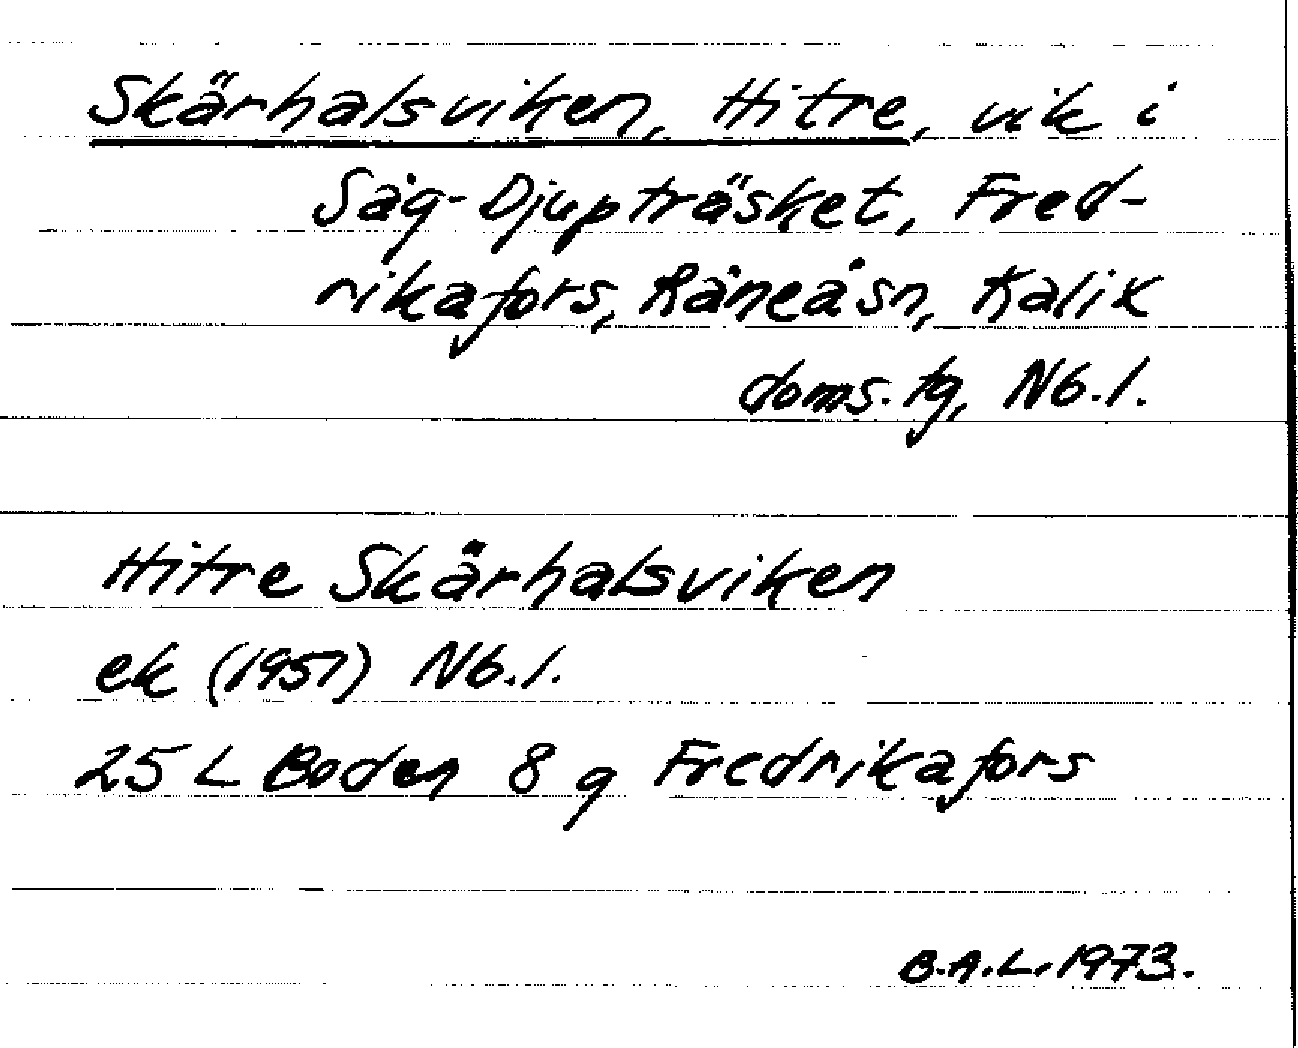 Skärhalsviken, Hitre, vik i
Såg-Djupträsket, Fred-
rikafors, Råneå sn, Kalix
doms. tg, Nb. l.
Hitre Skärhalsviken
ek (1957) Nb. l.
25 L Boden 8 g Fredrikafors
B.A.L. 1973.